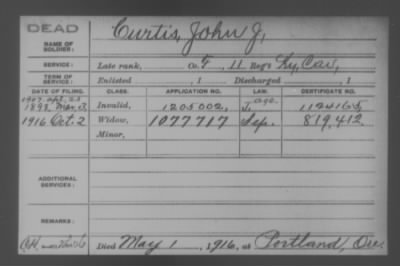 DEAD
Curtis, John J,
NAME OF SOLDIER:
SERVICE: Late rank, Co. F, 11 Reg't Ky, Cav,
TERM OF SERVICE: Enlisted , 1 Discharged , 1
DATE OF FILING. CLASS. APPLICATION NO. LAW. CERTIFICATE NO.
1907 Apl, 23 age.
1893, Mar, Invalid, 1205002, 1124165
1916 Oct. 2 Widow, 1077717 Sep. 819,412.
Minor,
ADDITIONAL SERVICES:
REMARKS:
Died May 1, 1916, at Portland, Ore.